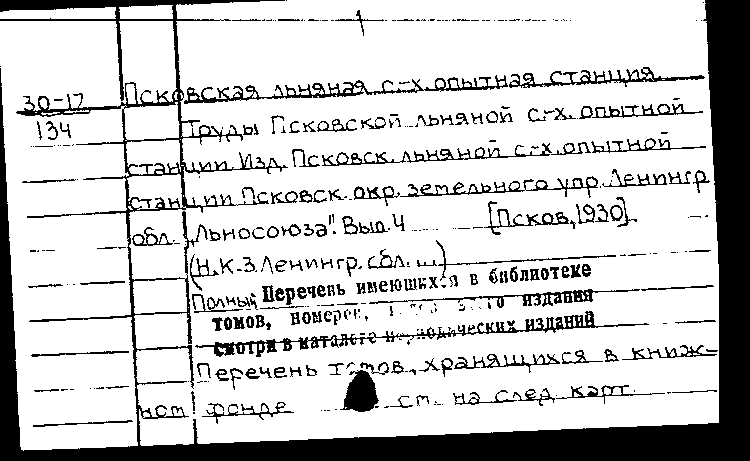 1
30-17 Псковская льняная с.-х. опытная станция.
134 Труды Псковской льняной с.-х. опытной
станции. Изд. Псковск. льняной с.-х. опытной
станции Псковск. окр. земельного упр. Ленингр.
обл. "Льносоюза". Вып. 4 [Псков, 1930].
(Н.К.З. Ленингр. обл. ...)
Полный Перечень имеющихся в библиотеке
томов, номеров, издания
смотри в каталоге периодических изданий
Перечень томов, хранящихся в книж-
ном фонде см. на след. карт.